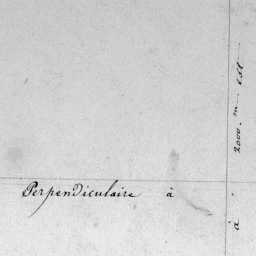 Perpendiculaire à
à 2000. m. Est